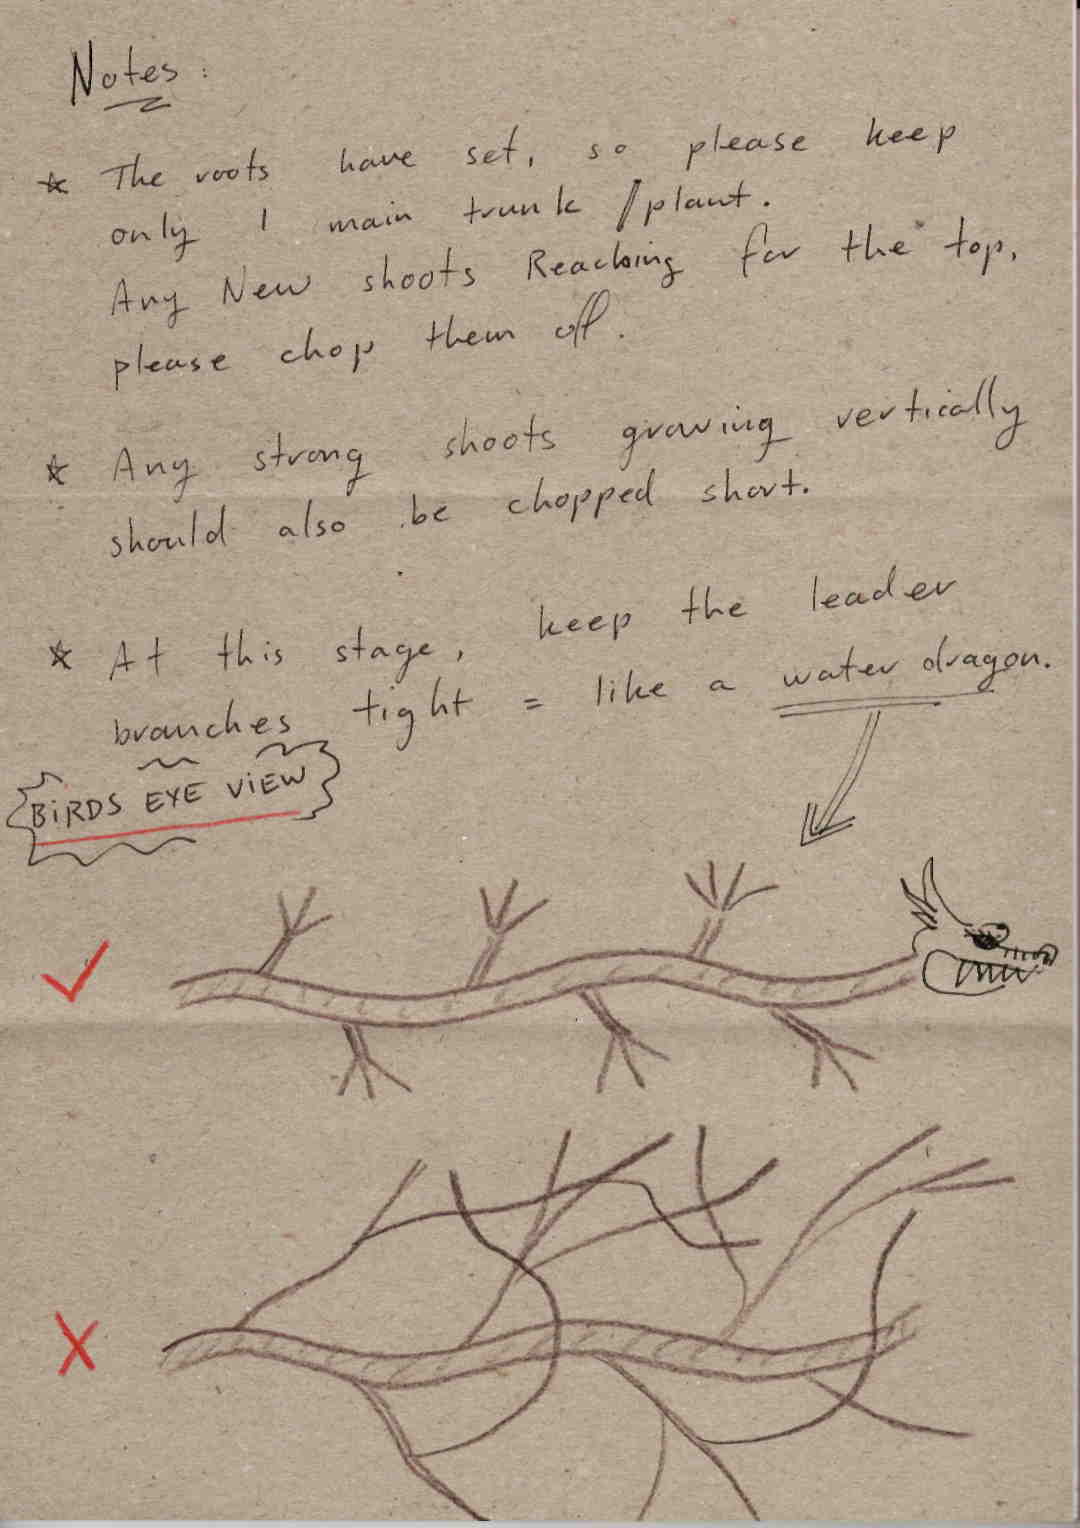 Notes:
* The roots have set, so please keep
only 1 main trunk / plant.
Any New shoots Reaching for the top,
please chop them off.
* Any strong shoots growing vertically
should also be chopped short.
* At this stage, keep the leader
branches tight = like a water dragon.
BiRDS EYE ViEW